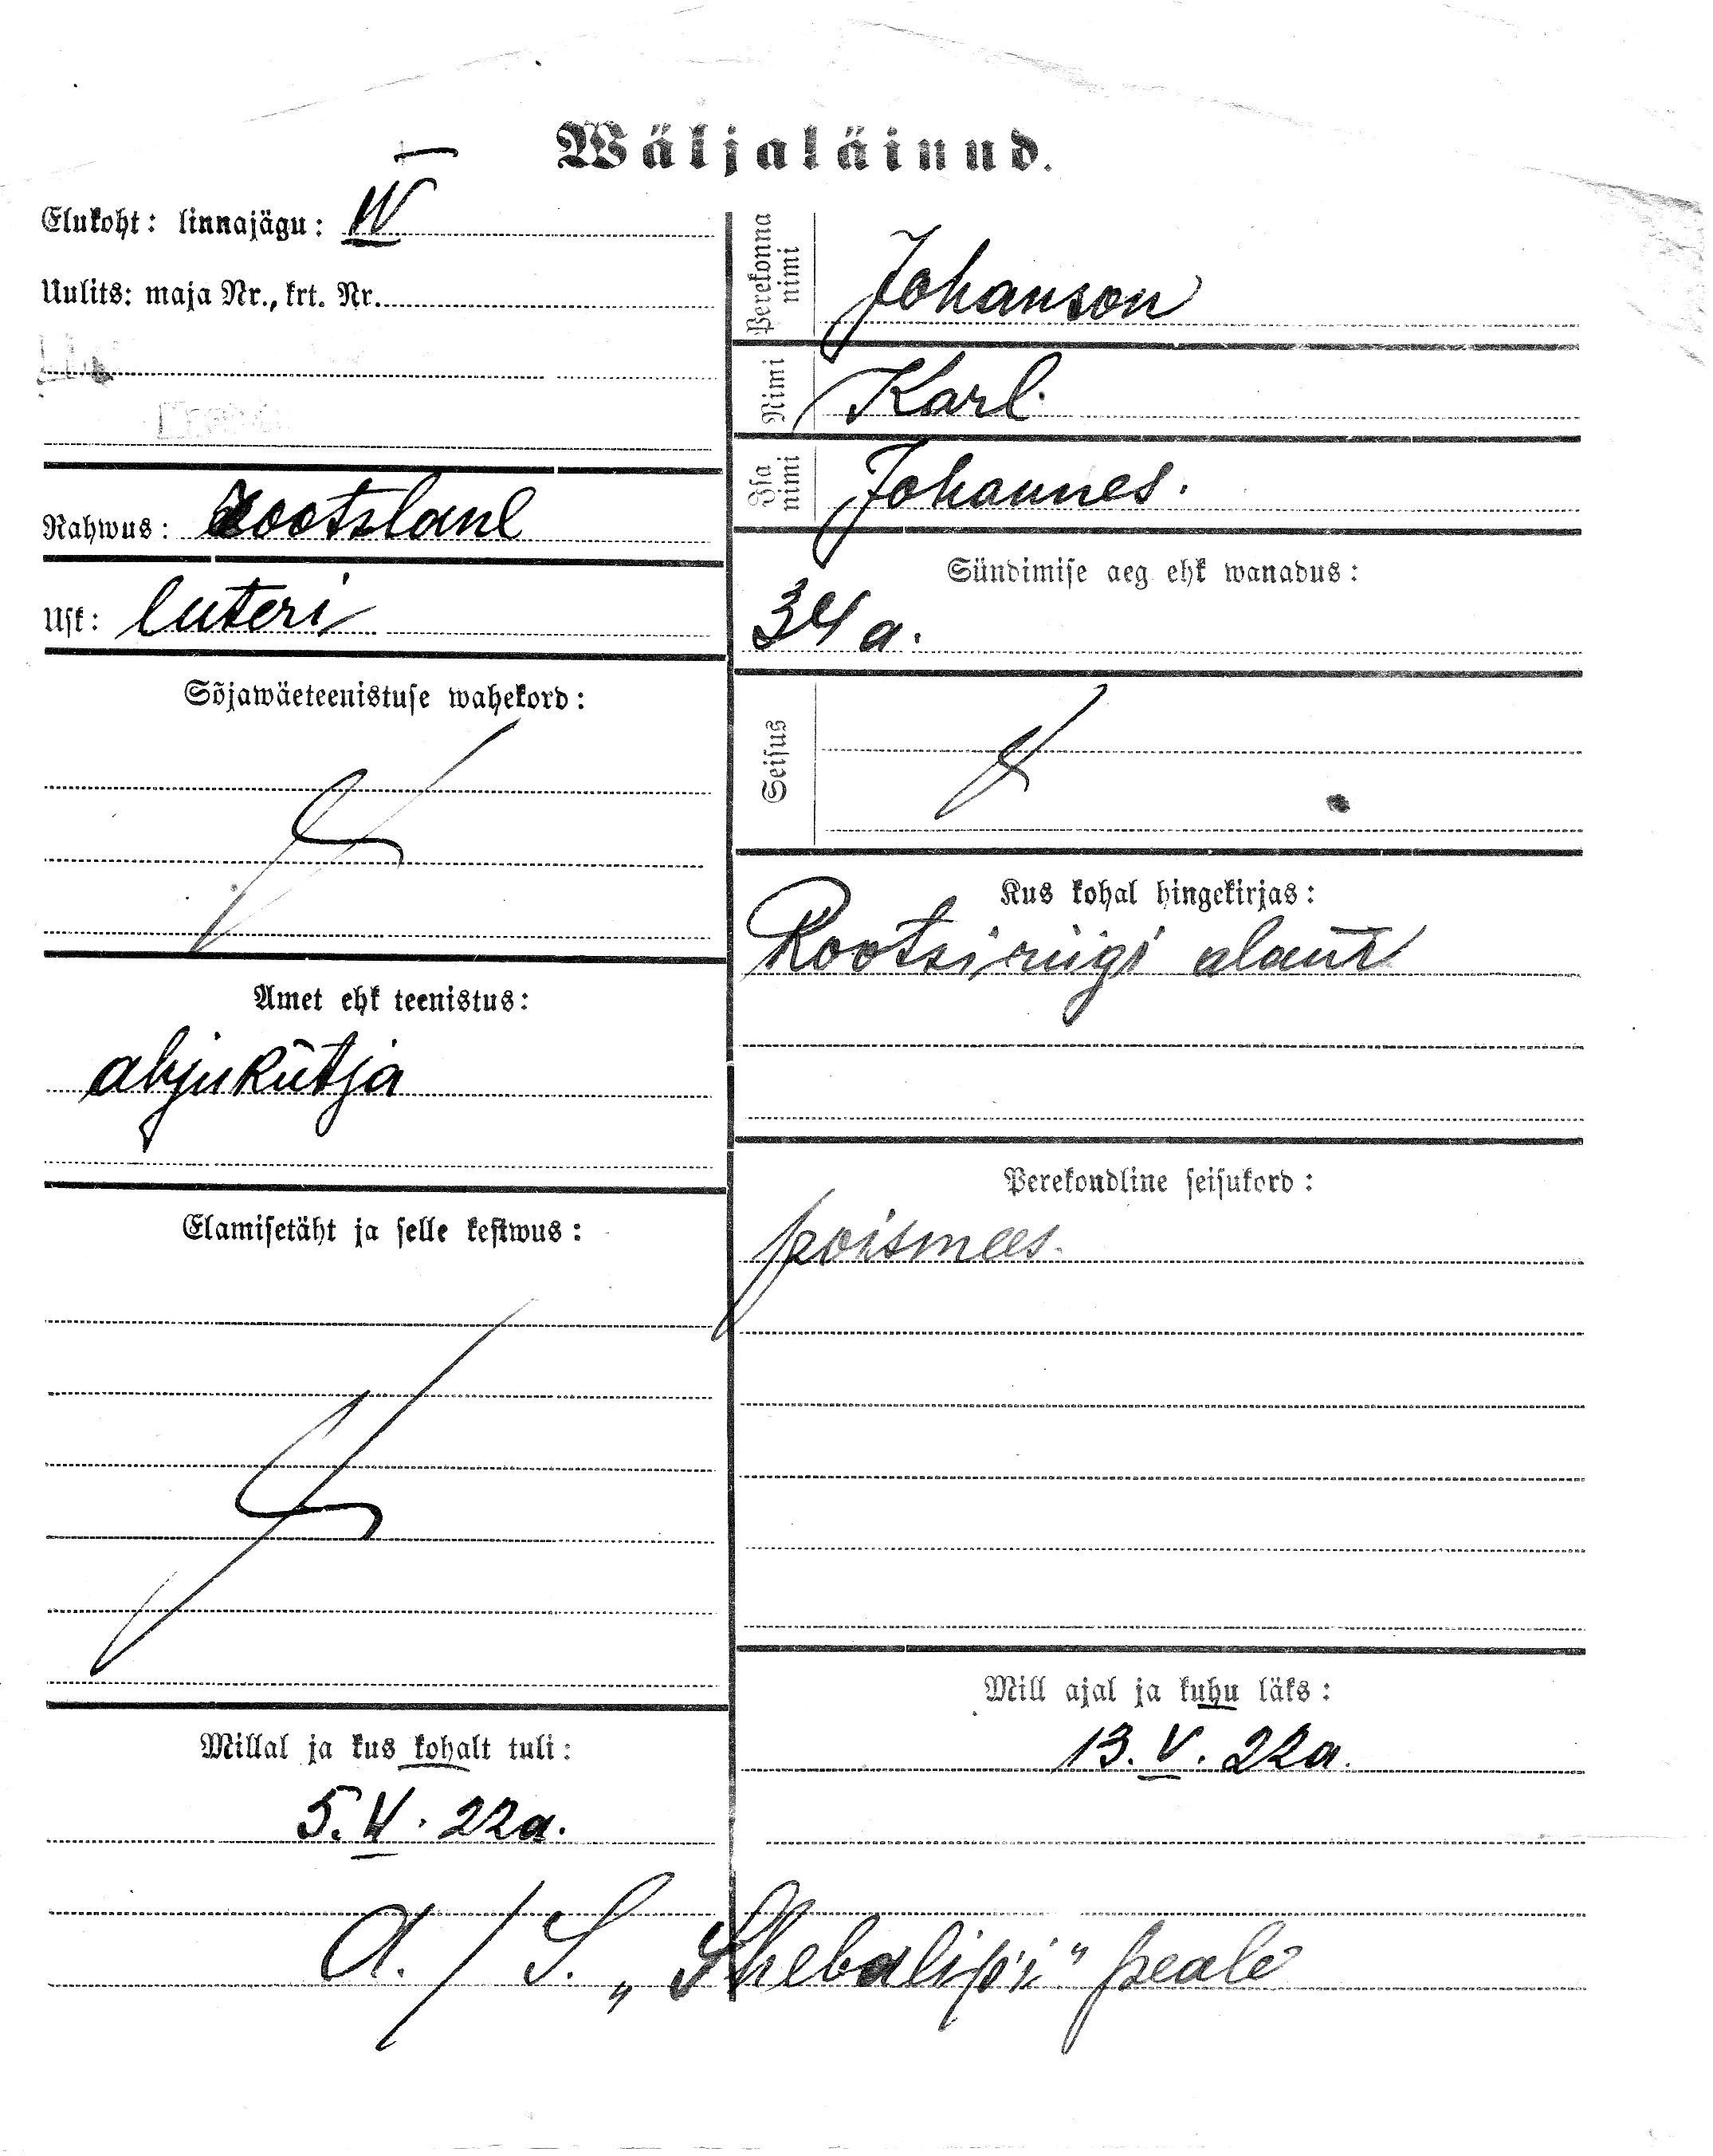 Wäljaläinud.
Elukoht: linnajägu: IV
Uulits: maja Nr., krt. Nr.
Rahwus: rootslane
Usk: luteri
Sõjawäeteenistuse wahekord:
Amet ehk teenistus:
ahjukütja
Elamisetäht ja selle kestwus:
Millal ja kus kohalt tuli:
5. V. 22a.
Perekonna nimi
Johanson
Nimi
Karl.
Isa nimi
Johannes.
Sündimise aeg ehk wanadus:
34 a.
Seisus
Kus kohal hingekirjas:
Rootsi riigi alam
Perekondline seisukord:
poismees.
Mill ajal ja kuhu läks:
13. V. 22a.
A./S. „Shebalip'i" peale